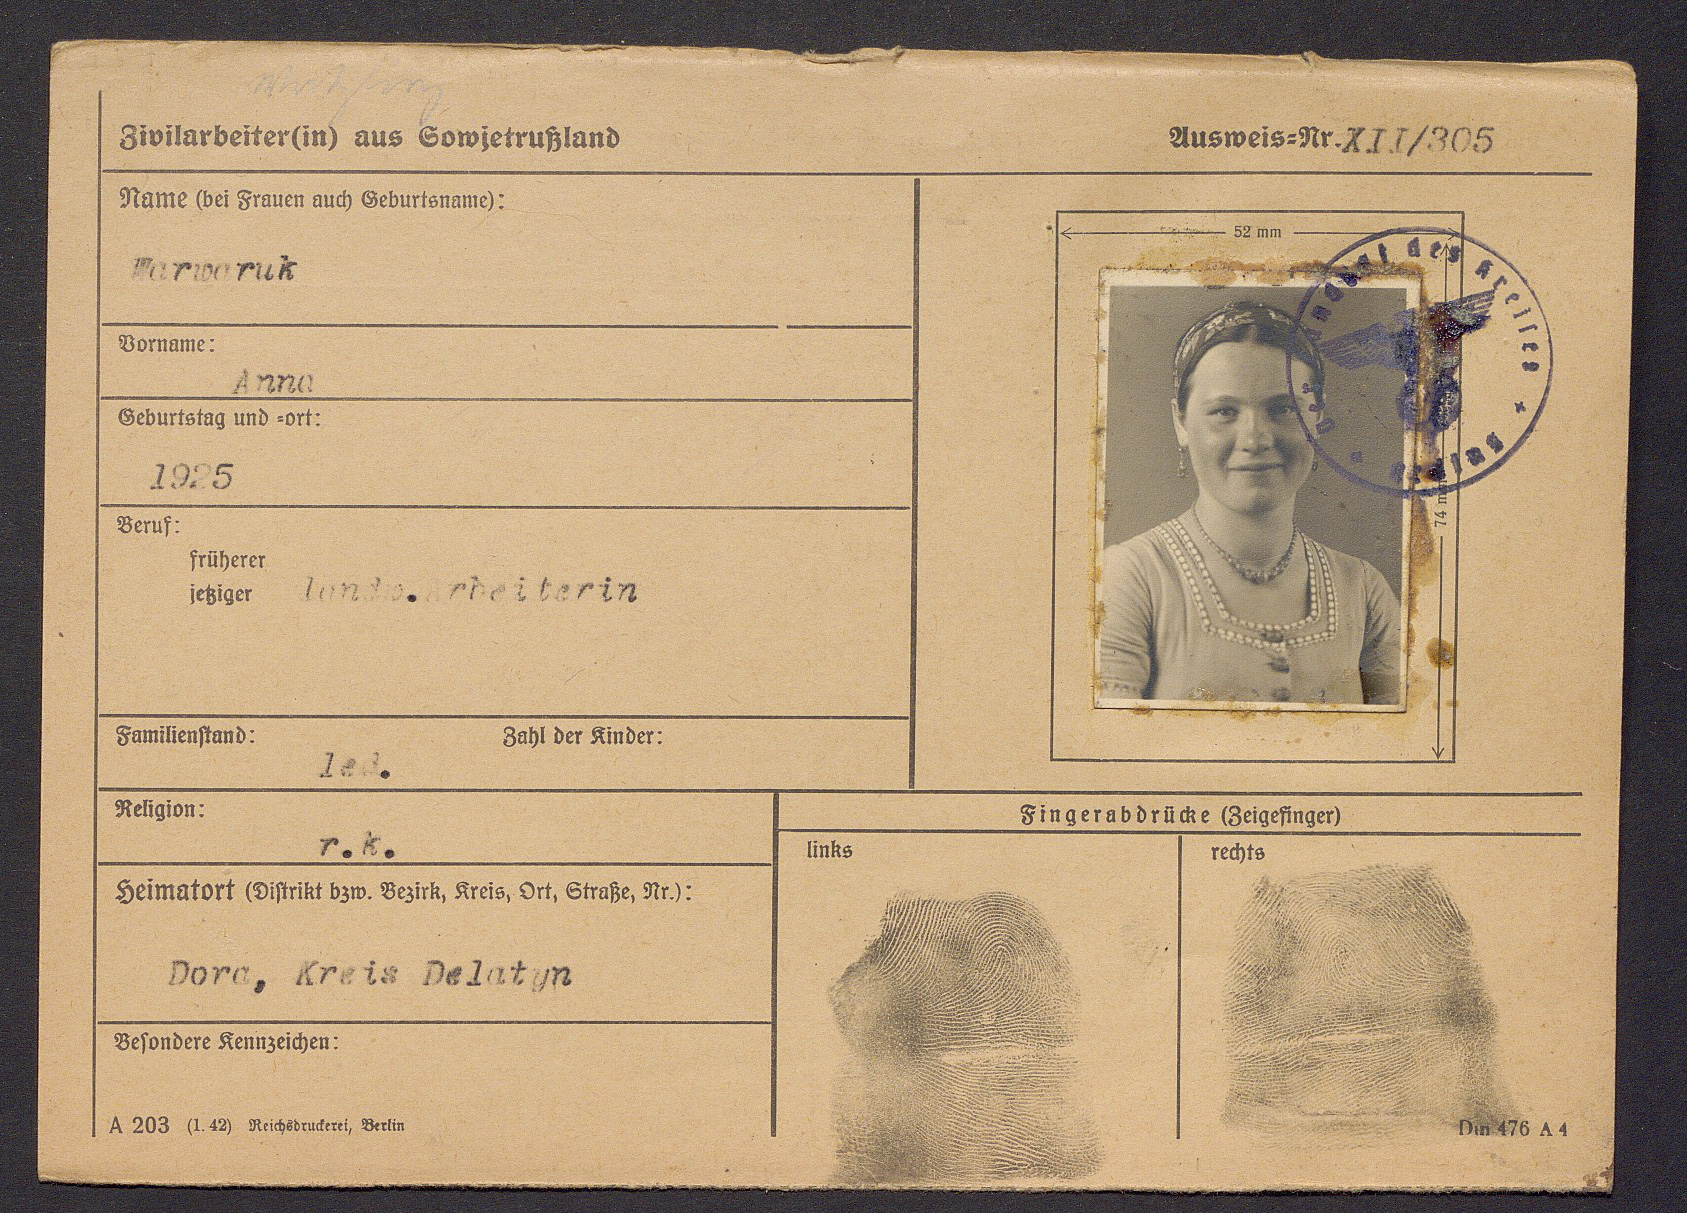 Zivilarbeiter(in) aus Sowjetrußland
Ausweis=Nr. XII/305
Name (bei Frauen auch Geburtsname):
Warwaruk
Vorname:
Anna
Geburtstag und =ort:
1925
Beruf:
früherer
jetziger landw. Arbeiterin
Familienstand: Zahl der Kinder:
led.
Religion:
r.k.
Heimatort (Distrikt bzw. Bezirk, Kreis, Ort, Straße, Nr.):
Dora, Kreis Delatyn
Besondere Kennzeichen:
A 203 (1. 42) Reichsdruckerei, Berlin
52 mm
74 mm
Der Landrat des Kreises
Fingerabdrücke (Zeigefinger)
links
rechts
Din 476 A 4